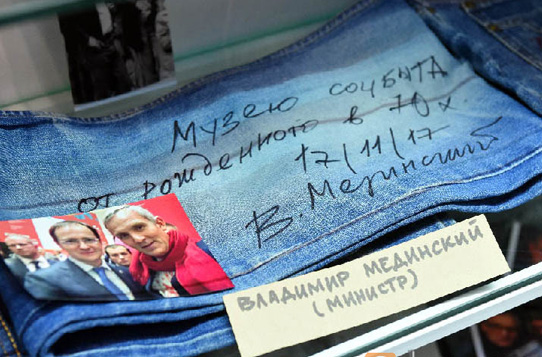 Музею соцбыта
от рожденного в 70х.
17/11/17
В. Мединский
ВЛАДИМИР МЕДИНСКИЙ
(МИНИСТР)